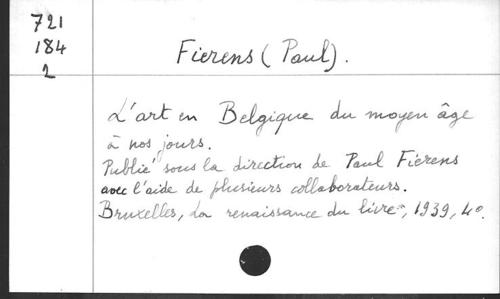 721
184
2
Fierens (Paul).
L'art en Belgique du moyen âge
à nos jours.
Publié sous la direction de Paul Fierens
avec l'aide de plusieurs collaborateurs.
Bruxelles, La renaissance du livre, 1939, 4º.